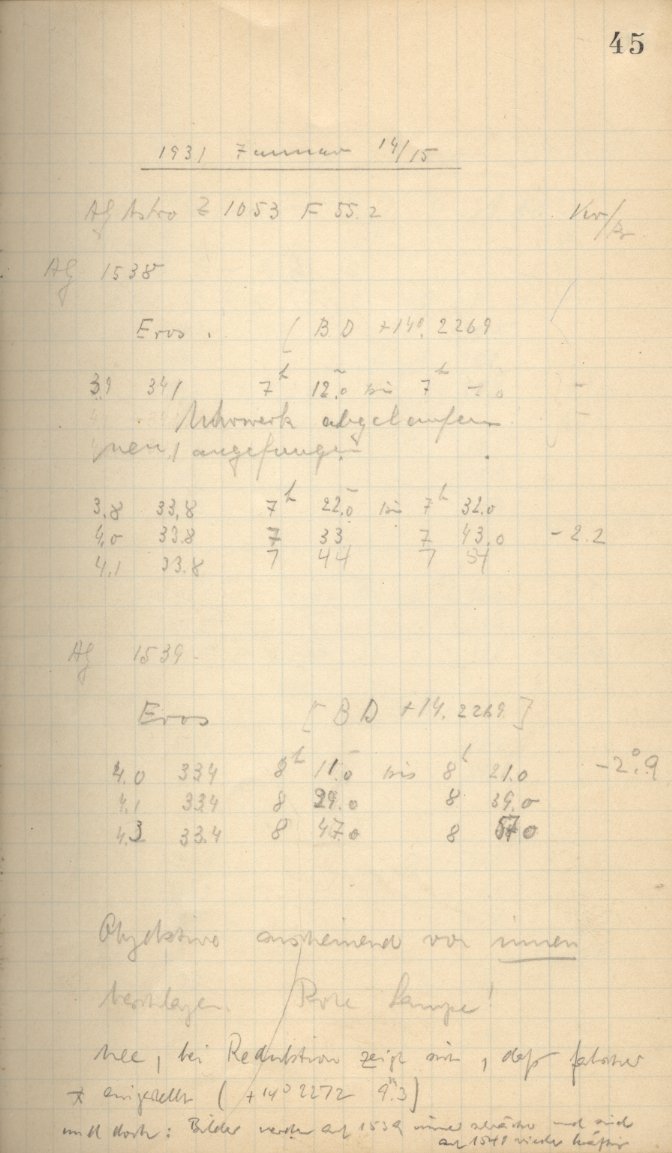 45
1931 Januar 14/15
AG Astro Z 1053 F 55.2 Kr/
AG 1538
Eros. [BD +14° 2269
3.9 341 7h 12.0 bis 7h
Uhrwerk abgelaufen
neu angefangen
3.8 33,8 7h 22.0 bis 7h 32.0
4.0 33.8 7 33 7 43.0 -2.2
4.1 33.8 7 44 7 54
AG 1539
Eros [BD +14.2269]
4.0 33.4 8h 11.0 bis 8h 21.0 -2°.9
4.1 33.4 8 29.0 8 39.0
4.3 33.4 8 47.0 8 57.0
Objektive anscheinend von innen
beschlagen. Rote Lampe!
Nee, bei Reduktion zeigt sich, daß falscher
* eingestellt (+14° 2272 9m.3)
und doch: Bilder werden auf 1539 immer schwächer und sind
auf 1540 wieder kräftig